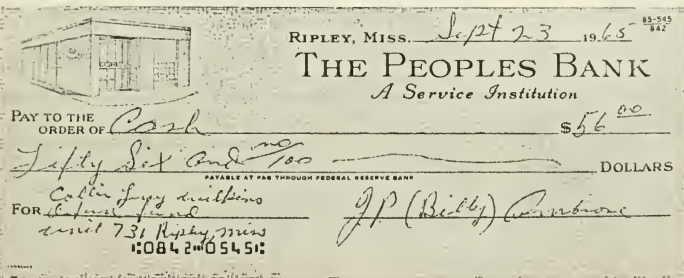 85-545
842
RIPLEY, MISS. Sept 23 1965
THE PEOPLES BANK
A Service Institution
PAY TO THE
ORDER OF Cash $56 00
Fifty Six and no/100 DOLLARS
PAYABLE AT PAR THROUGH FEDERAL RESERVE BANK
FOR Collin Wilkins
defense fund
unit 731 Ripley, miss
J P (Billy)
⑆0842⑉0545⑆